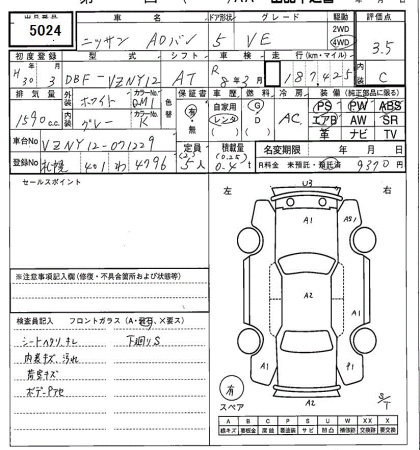 出品番号 車名 ドア形状 グレード 駆動 評価点
5024 ニッサン ADバン 5 VE 2WD 4WD 3.5
初度登録 型式 シフト 車検 走行(km・マイル)
H30 3 DBF-VZNY12 AT R 8年3月 187,425 C
排気量 外装 カラーNo 色替 保証書 車歴 燃料 冷房 装備(純正部品に限る)
1590cc ホワイト QM1 有・無 自家用 レンタ G D AC PS PW ABS
内装 グレー カラーNo K エアB AW SR
革 ナビ TV
車台No VZNY12-071229 定員 積載量 名変期限 年 月 日
登録No 札幌 401 わ 4796 (2) 5人 (0.25) 0.4t R料金 未預託・預託済 9370円
セールスポイント
左 右
U3
A1
A2
A2
A1
P1
A1
※注意事項記入欄(修復・不具合箇所および状態)
検査員記入 フロントガラス(A・飛石、×要ス)
シートヘタリ、キレ 下回りS
内装キズ、汚れ
荷室キズ
ボデーPアセ
有
スペア
S/T
A B C P S U W XX X
線キズ 板金キズ 腐食 要塗装 サビ 凹凸 補修跡 交換済 要交換